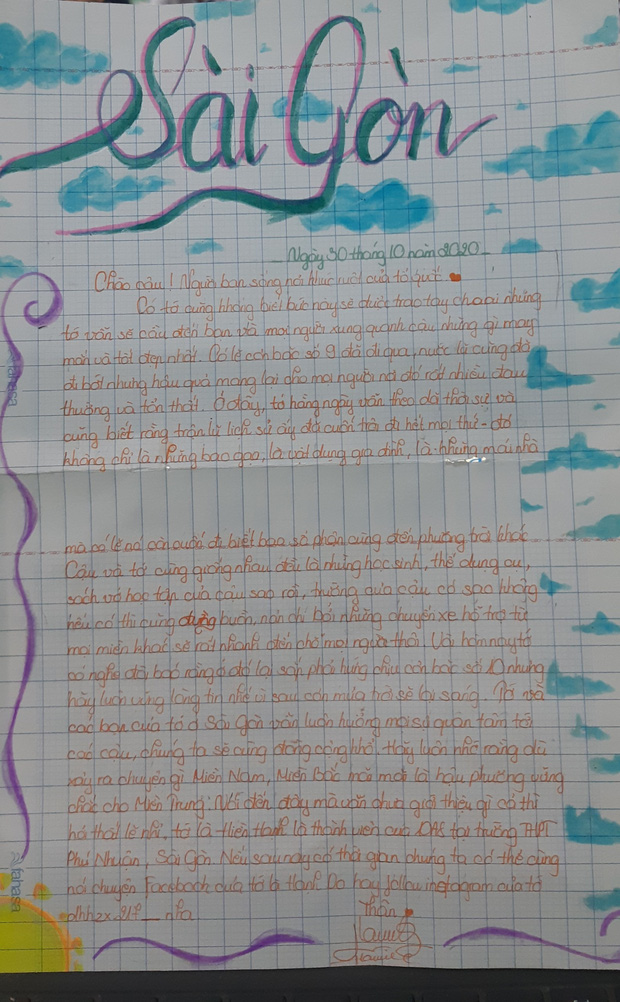 Sài Gòn
Ngày 30 tháng 10 năm 2020
Chào cậu! Người bạn sống nơi khúc ruột của tổ quốc
Có tớ cũng không biết bức này sẽ được trao tay cho ai nhưng
tớ vẫn sẽ cầu đến bạn và mọi người xung quanh cậu những gì may
mắn và tốt đẹp nhất. Có lẽ cơn bão số 9 đã đi qua, nước lũ cũng đã
đi bớt nhưng hậu quả mang lại cho mọi người nơi đó rất nhiều đau
thương và tổn thất. Ở đây, tớ hằng ngày vẫn theo dõi thời sự và
cũng biết rằng trận lũ lịch sử ấy đã cuốn trôi đi hết mọi thứ - đó
không chỉ là những bao gạo, là vật dụng gia đình, là những mái nhà
mà có lẽ nó còn cuốn đi biết bao số phận cùng đến phương trời khác
Cậu và tớ cũng giống nhau đều là những học sinh, thế dụng cụ,
sách vở học tập của cậu sao rồi, trường của cậu có sao không
nếu có thì cũng đừng buồn, nản chí bởi những chuyến xe hỗ trợ từ
mọi miền khác sẽ rất nhanh đến chỗ mọi người thôi. Và hôm nay tớ
có nghe đài báo rằng ở đó lại sắp phải hứng chịu cơn bão số 10 nhưng
hãy luôn vững lòng tin nhé vì sau cơn mưa trời sẽ lại sáng. Tớ và
các bạn của tớ ở Sài Gòn vẫn luôn hướng mọi sự quan tâm tới
các cậu, chúng ta sẽ cùng đồng cam cộng khổ. Hãy luôn nhớ rằng dù
xảy ra chuyện gì Miền Nam, Miền Bắc mãi mãi là hậu phương vững
chắc cho Miền Trung. Nói đến đây mà vẫn chưa giới thiệu gì có thì
há thất lễ nhỉ, tớ là Thiên Thanh là thành viên của tại trường THPT
Phú Nhuận, Sài Gòn. Nếu sau này có thời gian chúng ta có thể cùng
nói chuyện Facebook của tớ là Thanh Do hay follow instagam của tớ
nha
Thân